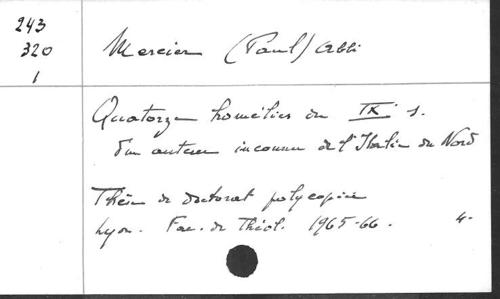 243
320
1
Mercier (Paul) Abbé
Quatorze homélies du IXe s.
d'un auteur inconnu de l'Italie du Nord
Thèse de doctorat polycopiée
Lyon. Fac. de Théol. 1965-66. 4-